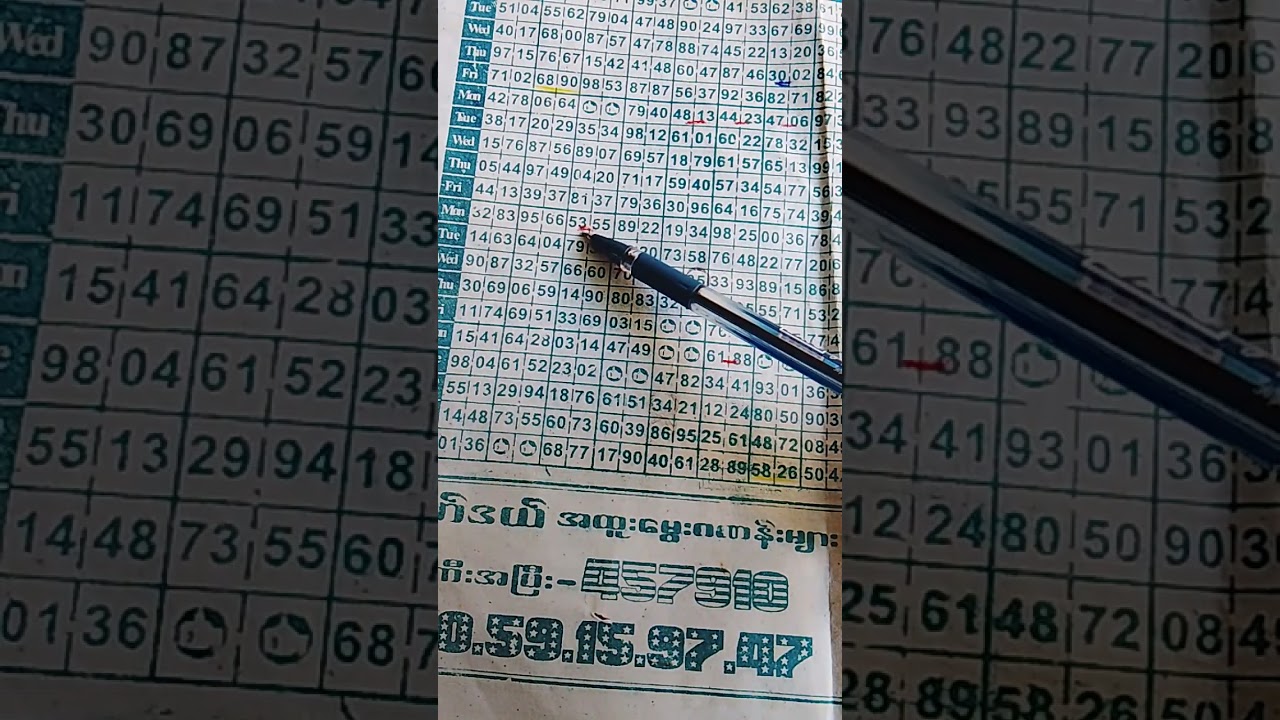 Tue 51 04 55 62 79 04 47 48 90 24 97 33 67 69
Wed 40 17 68 00 87 57 47 78 88 74 45 22 13 20 36
Thu 97 15 76 67 15 42 41 48 60 47 87 46 30 02 84
Fri 71 02 68 90 98 53 87 87 56 37 92 36 82 71 82
Mon 42 78 06 64 79 40 48 13 44 23 47 06 97
Tue 38 17 20 29 35 34 98 12 61 01 60 22 78 32 15
Wed 15 76 87 56 89 07 69 57 18 79 61 57 65 13 99
Thu 05 44 97 49 04 20 71 17 59 40 57 34 54 77 56
Fri 44 13 39 37 81 37 79 36 30 96 64 16 75 74 39
Mon 32 83 95 66 53 55 89 22 19 34 98 25 00 36 78
Tue 14 63 64 04 79 20 73 58 76 48 22 77 20
Wed 90 87 32 57 66 60 33 93 89 15 86
30 69 06 59 14 90 80 83 55 71 53
11 74 69 51 33 69 03 15
15 41 64 28 03 14 47 49 61 88
98 04 61 52 23 02 47 82 34 41 93 01 36
55 13 29 94 18 76 61 51 34 21 12 24 80 50 90
14 48 73 55 60 73 60 39 86 95 25 61 48 72 08
01 36 68 77 17 90 40 61 28 89 58 26 50
အထူးမွေးဂဏန်းများ
457910
59.15.97.47